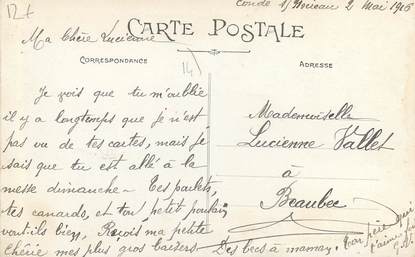 12+
Condé s/Noireau 2 Mai 1906
Ma Chère Lucienne
CARTE POSTALE
CORRESPONDANCE
ADRESSE
Je vois que tu m'oublie
il y a longtemps que je n'est
pas vu de tes cartes, mais je
sais que tu est allé à la
messe dimanche - Tes poulets,
tes canards, et ton petit poulain
vont-ils bien, Reçois ma petite
chérie mes plus gros baisers
Des becs à maman
Mademoiselle
Lucienne Vallet
à
Beaubec
Ton père qui
t'aime